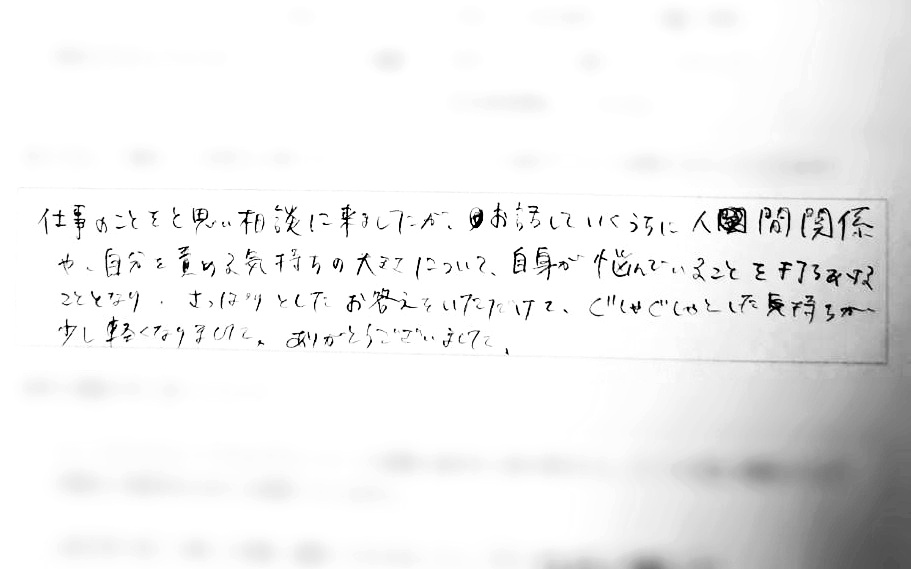 仕事のことをと思い相談に来ましたが、お話していくうちに人間関係
や、自分を責める気持ちの大きさについて、自身が悩んでいることを
こととなり、さっぱりとしたお答えをいただけて、ぐしゃぐしゃとした気持ちが
少し軽くなりました。ありがとうございました。